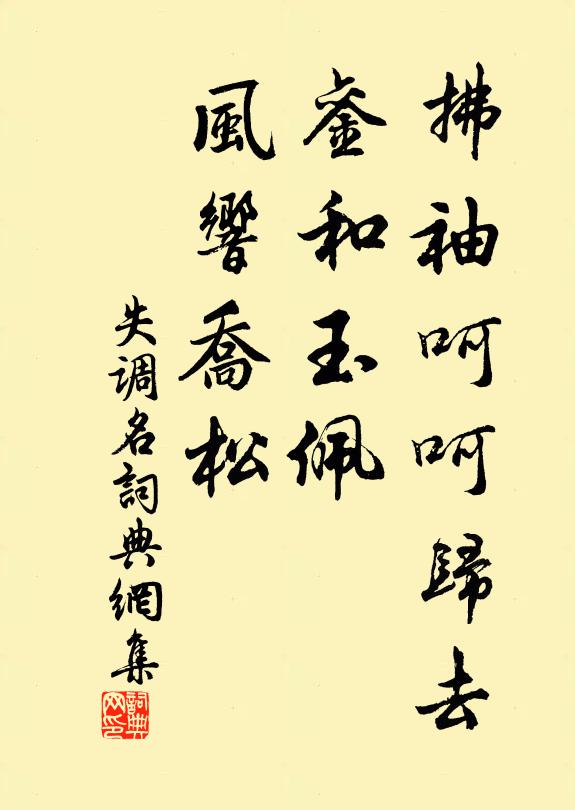 拂袖呵呵歸去
銮和玉佩
風響喬松
失調名詞典網集
詞典网印